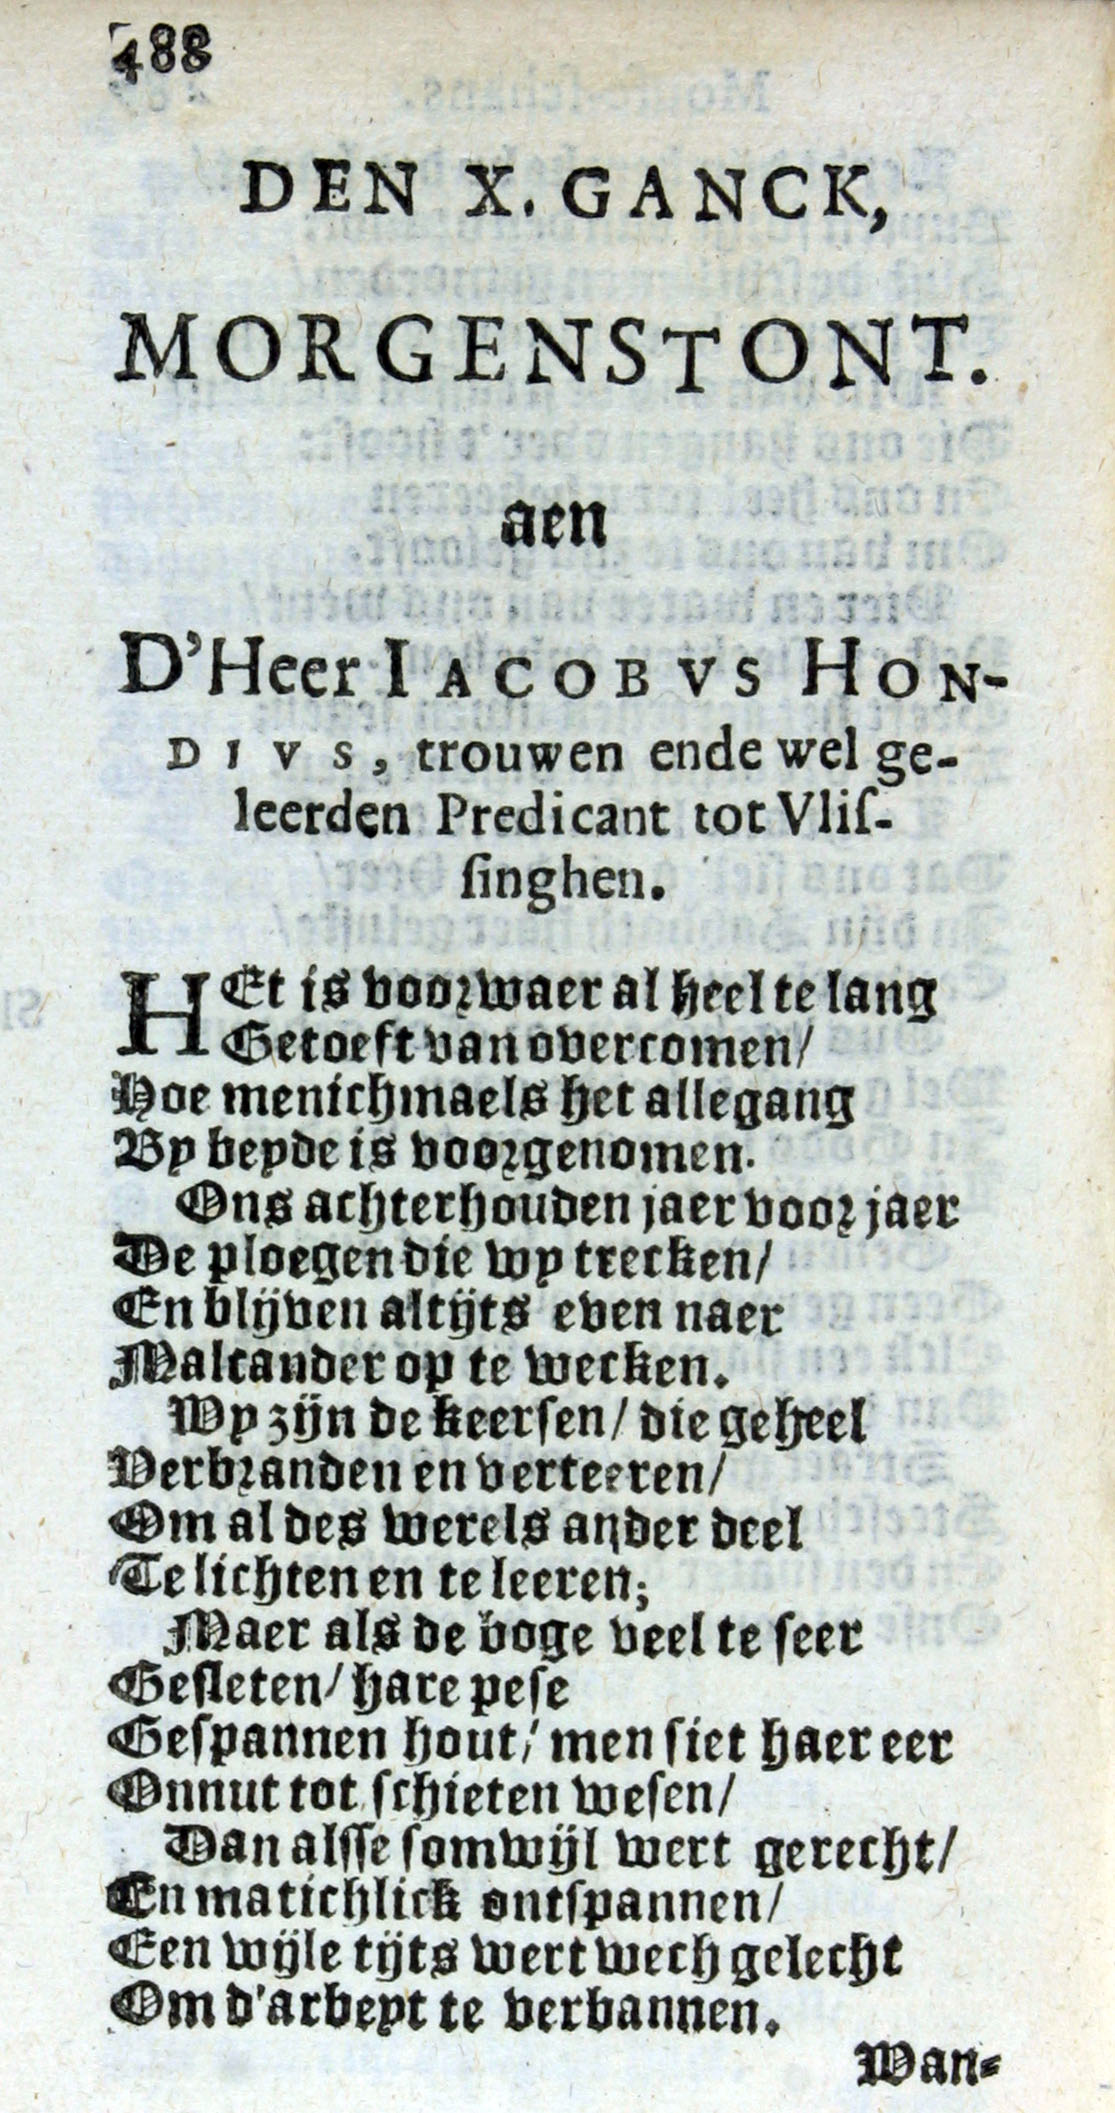 488
DEN X. GANCK,
MORGENSTONT.
aen
D'Heer IACOBVS HON-
DIVS, trouwen ende wel ge-
leerden Predicant tot Vliſ-
ſinghen.
HEt is voorwaer al heel te lang
Getoeft van overcomen/
Hoe menichmaels het allegang
By beyde is voorgenomen.
Ons achterhouden jaer voor jaer
De ploegen die wy trecken/
En blijven altijts even naer
Malcander op te wecken.
Wy zijn de keerſen/ die geheel
Verbranden en verteeren/
Om al des werels ander deel
Te lichten en te leeren;
Maer als de boge veel te ſeer
Geſleten/ hare peſe
Geſpannen hout/ men ſiet haer eer
Onnut tot ſchieten weſen/
Dan alſſe ſomwijl wert gerecht/
En matichlick ontſpannen/
Een wijle tijts wert wech gelecht
Om d'arbeyt te verbannen.
Wan-